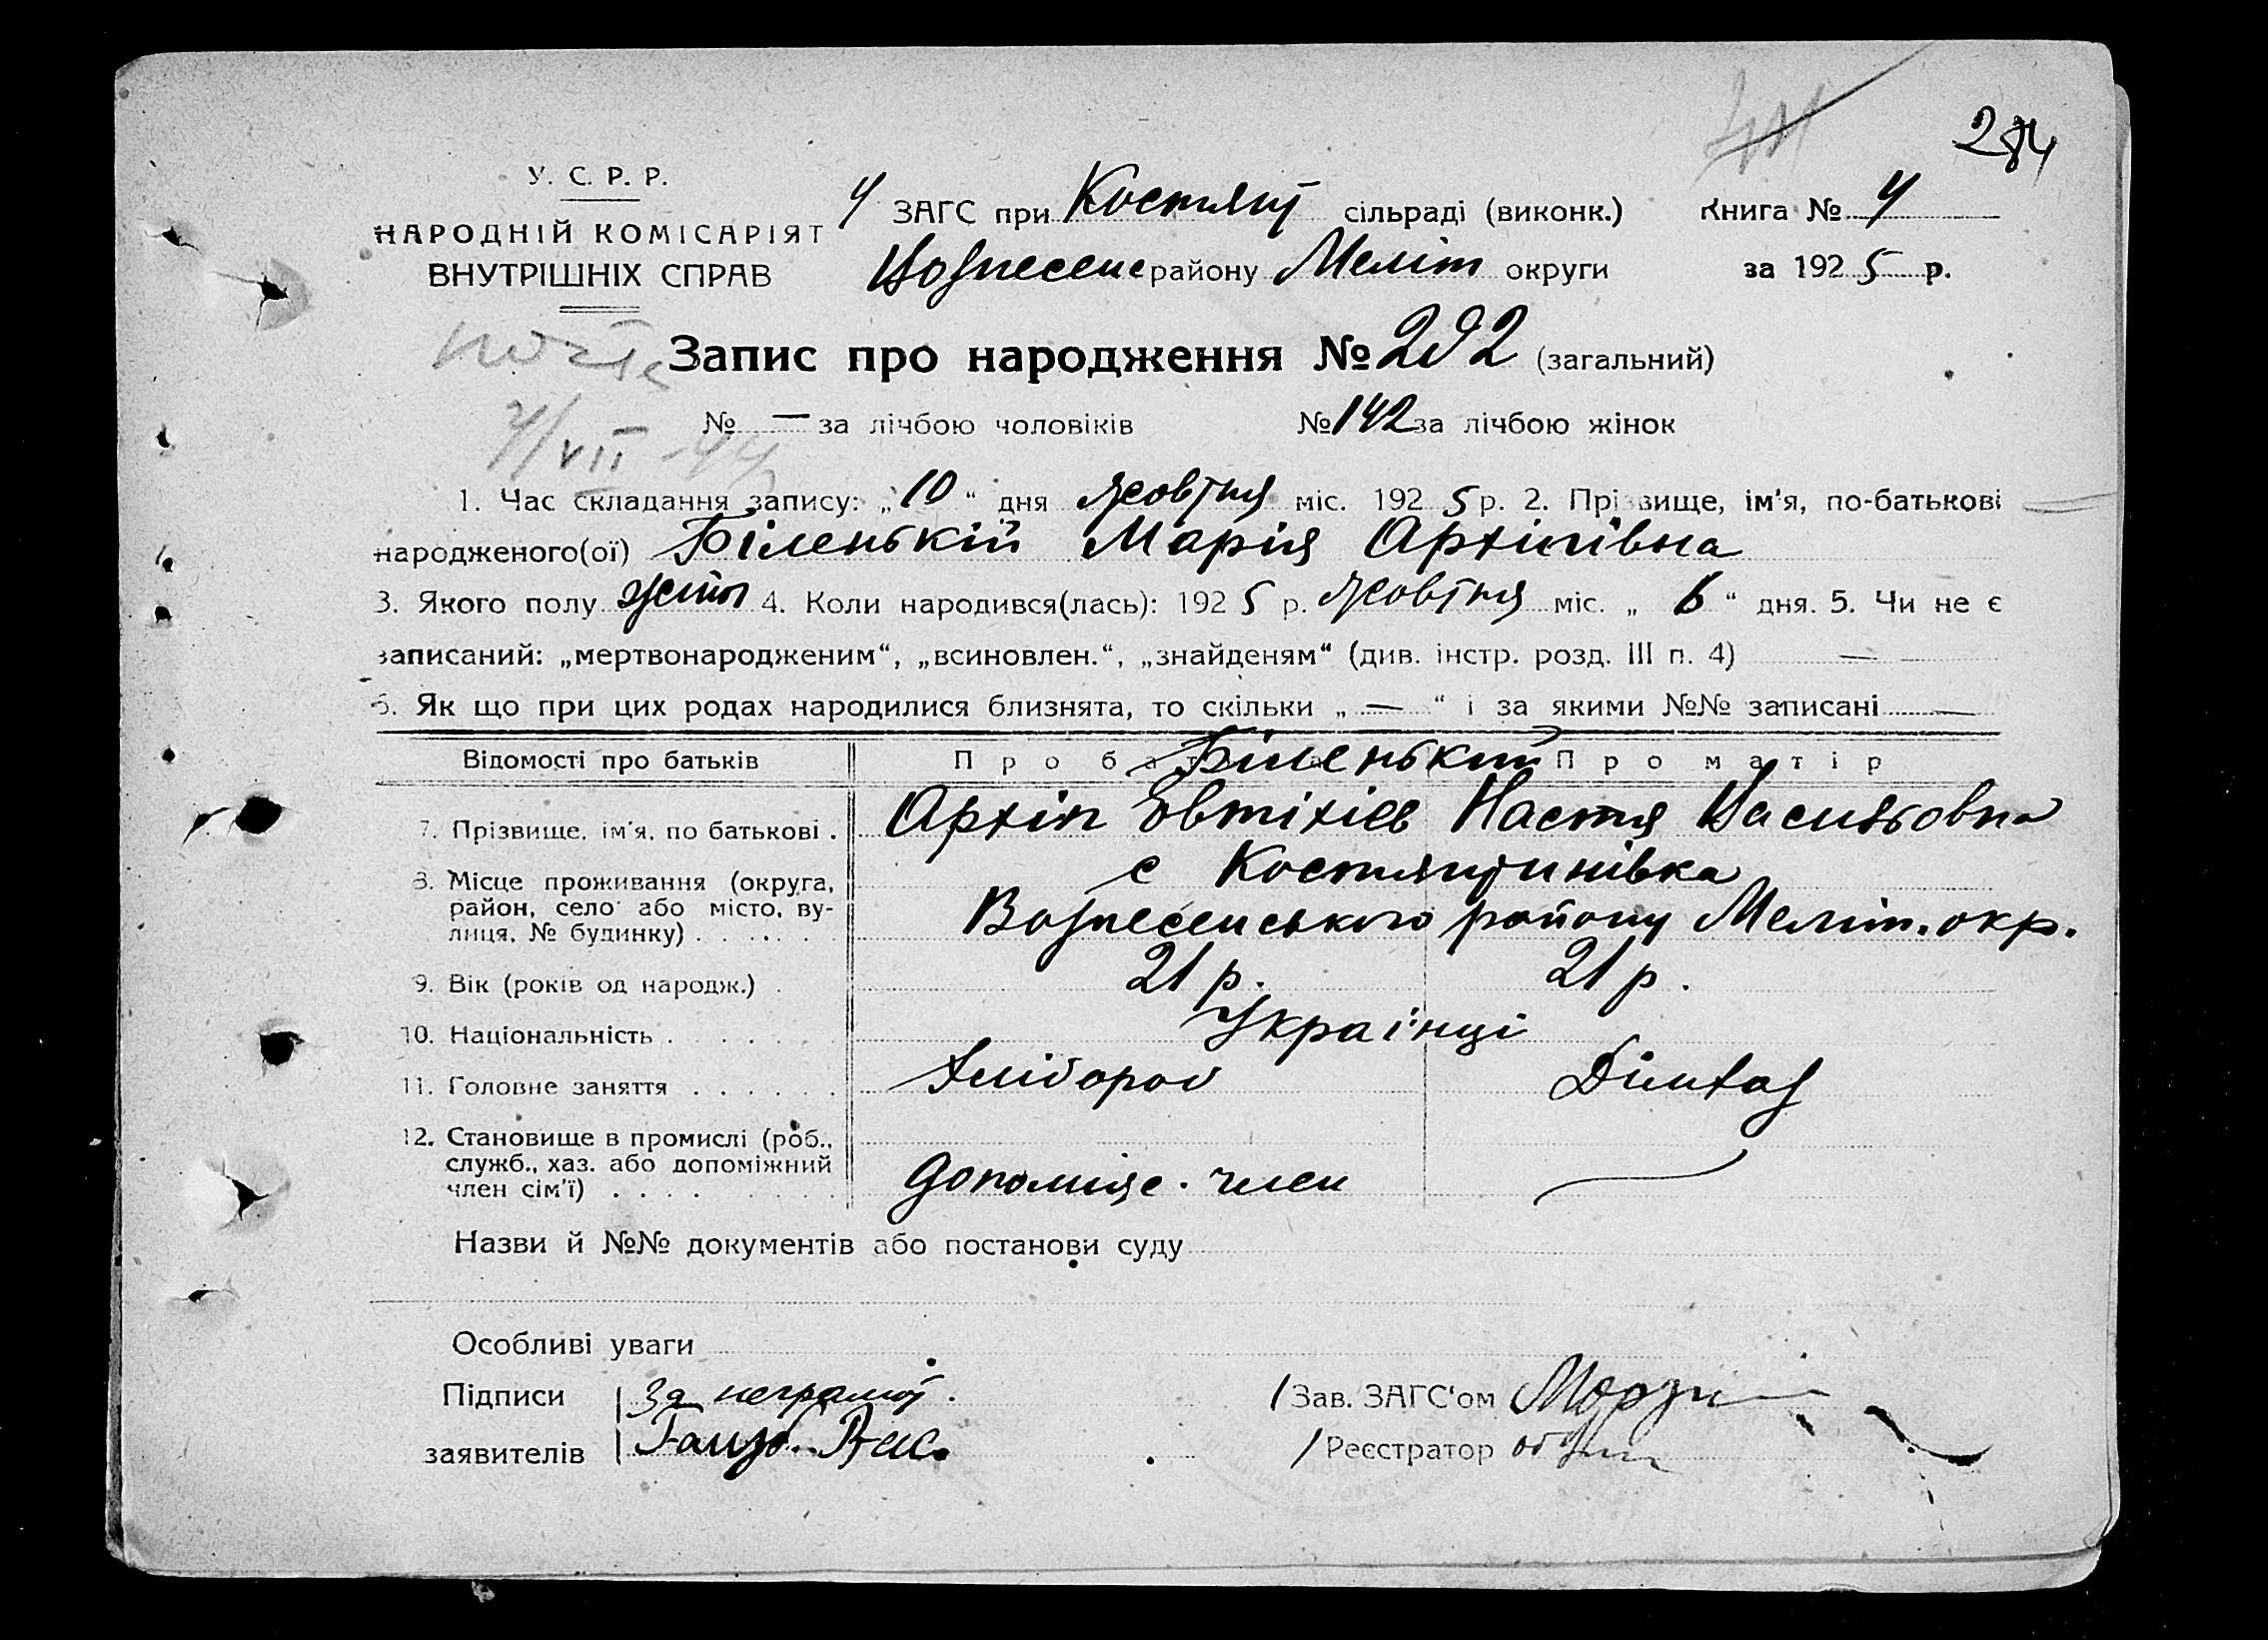 284
У. С. Р. Р.
НАРОДНІЙ КОМІСАРІЯТ
ВНУТРІШНІХ СПРАВ
4 ЗАГС при Костянт сільраді (виконк.) Книга № 4
Вознесенс району Меліт округи за 1925 р.
Запис про народження № 292 (загальний)
№ — за лічбою чоловіків № 142 за лічбою жінок
VII
1. Час складання запису: „10“ дня жовтня міс. 1925 р. 2. Прізвище, ім'я, по-батькові
народженого(ої) Біленькій Марія Архипівна
3. Якого полу 4. Коли народився(лась): 1925 р. жовтня міс. „6“ дня. 5. Чи не є
записаний: „мертвонародженим“, „всиновлен.“, „знайденям“ (див. інстр. розд. III п. 4) —
6. Як що при цих родах народилися близнята, то скільки „—“ і за якими №№ записані —
Відомості про батьків Про батька Біленький Про матір
7. Прізвище, ім'я, по батькові . Архіп Євтіхієв Настя Васильовна
с Костянтинівка
8. Місце проживання (округа, район, село або місто, вулиця, № будинку) . . . . . . Вознесенського району Меліт. окр.
9. Вік (років од народж.) . 21 р. 21 р.
10. Національність . . . . . . Українці
11. Головне заняття . . . . . . Хлібороб
12. Становище в промислі (роб.,
служб., хаз. або допоміжний
член сім'ї) . . . . . . . . допоміже. член
Назви й №№ документів або постанови суду
Особливі уваги
Підписи За неграмот. Зав. ЗАГС'ом
заявителів Реєстратор